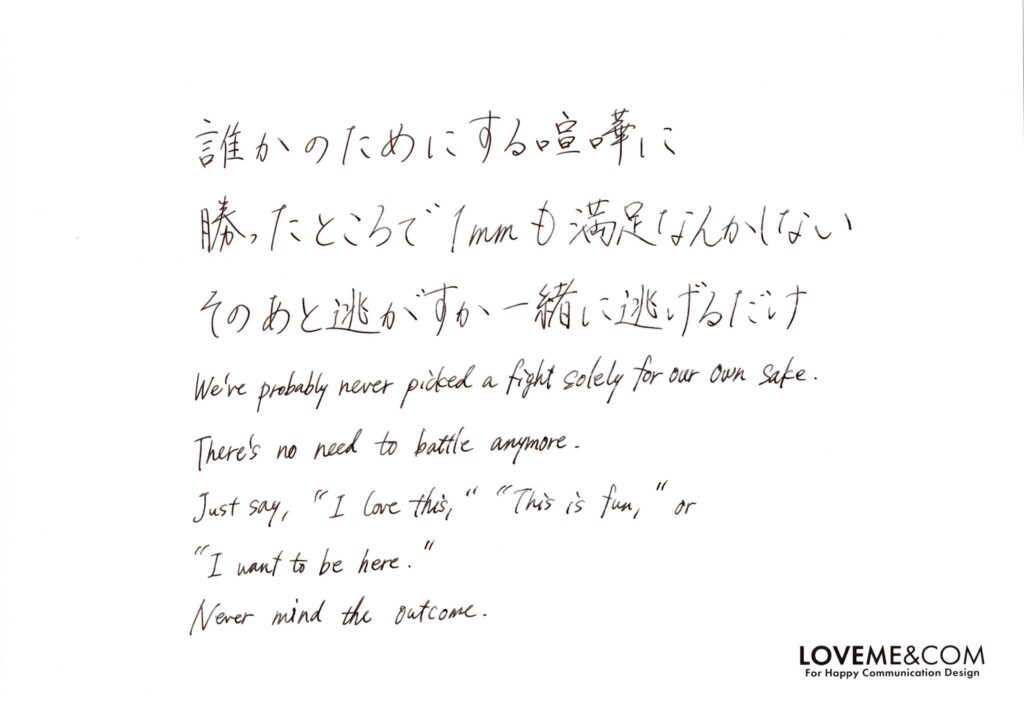 誰かのためにする喧嘩に
勝ったところで1mmも満足なんかしない
そのあと逃がすか一緒に逃げるだけ
We've probably never picked a fight solely for our own sake.
There's no need to battle anymore.
Just say, "I love this," "This is fun," or
"I want to be here."
Never mind the outcome.
LOVEME&COM
For Happy Communication Design